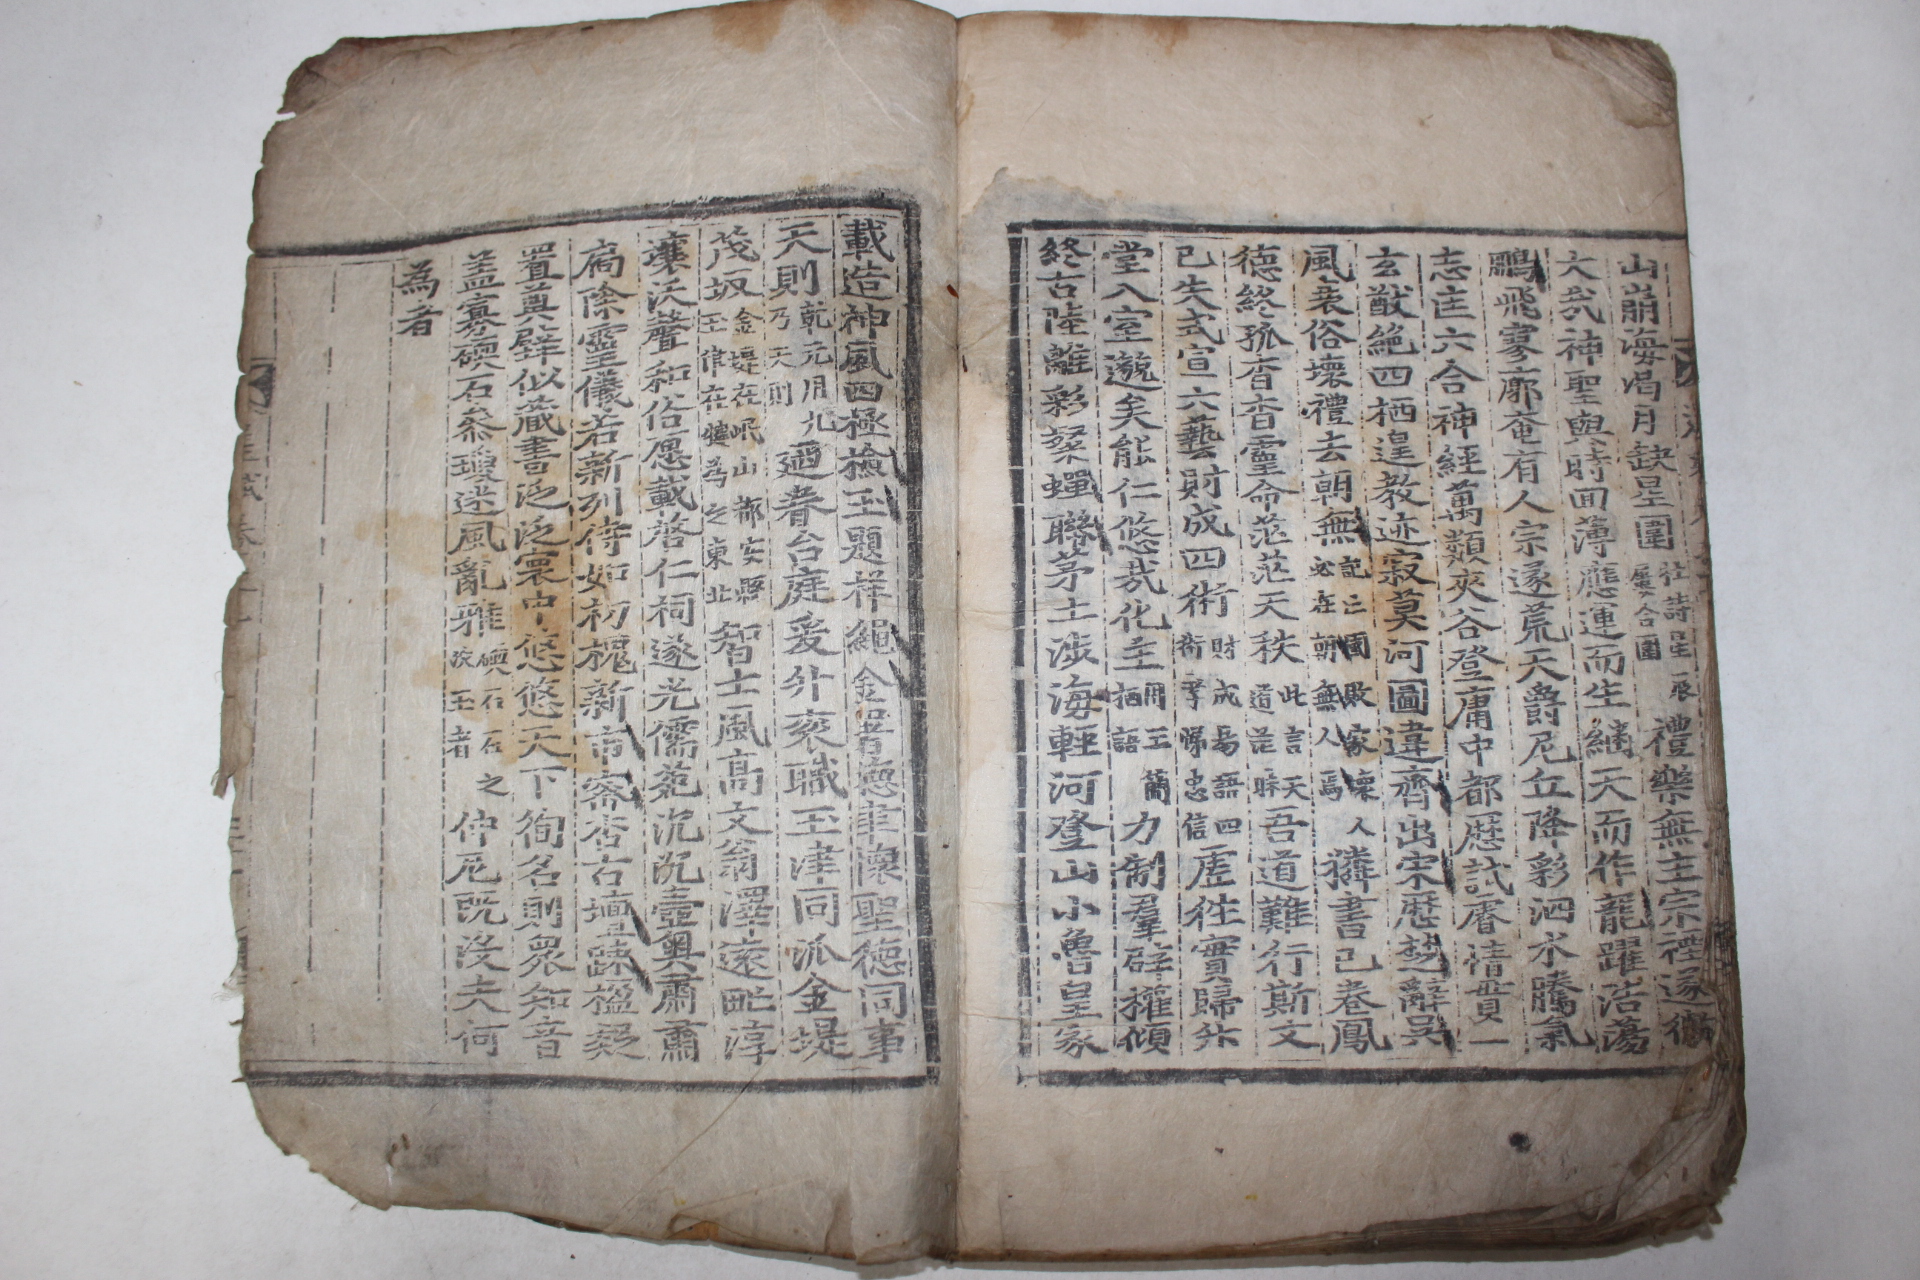 山崩海渴月缺星圍杜詩星辰屢合圍禮樂無主宗禋遂徹
大哉神聖與時回薄應運而生繼天而作龍躍浩蕩
鵬飛寥廓奄有人宗遂荒天爵尼丘降彩泗水騰氣
志庄六合神經萬類夾谷登庸中都歷試睿情貫一
玄猷絶四栖遑教迹寂莫河圖違齊出宋歷楚辭吳
風衰俗壞禮去朝無記亡國敗家壞人必在朝無人焉麟書已卷鳳
德終孤杳杳靈命茫茫天秩此言天道茫昧吾道難行斯文
已失式宣六藝財成四術財成易語四術孝悌忠信虛往實歸外
堂入室邈矣能仁悠哉化主用王簡栖語力制羣辟權傾
終古陸離彩粲蟬聯茅土涉海輕河登山小魯皇家
載造神風四極檢玉題祥繩金署德聿懷聖德同事
天則乾元用九乃天則廼眷台庭爰外衮職玉津同派金堤
茂坂金堤在岷山都安縣玉律在犍爲之東北智士風高文翁澤遠毗淳
壤沃聲和俗愿載啓仁祠遂光儒苑沉沉壼奧肅肅
扃除靈儀若新列侍如初槐新市密杏古壇踈楹疑
置奠壁似藏書泛泛寰中悠悠天下徇名則衆知音
盖寡礎石參瓊迷風亂雅礎石石之次玉者仲尼旣没夫何
為者